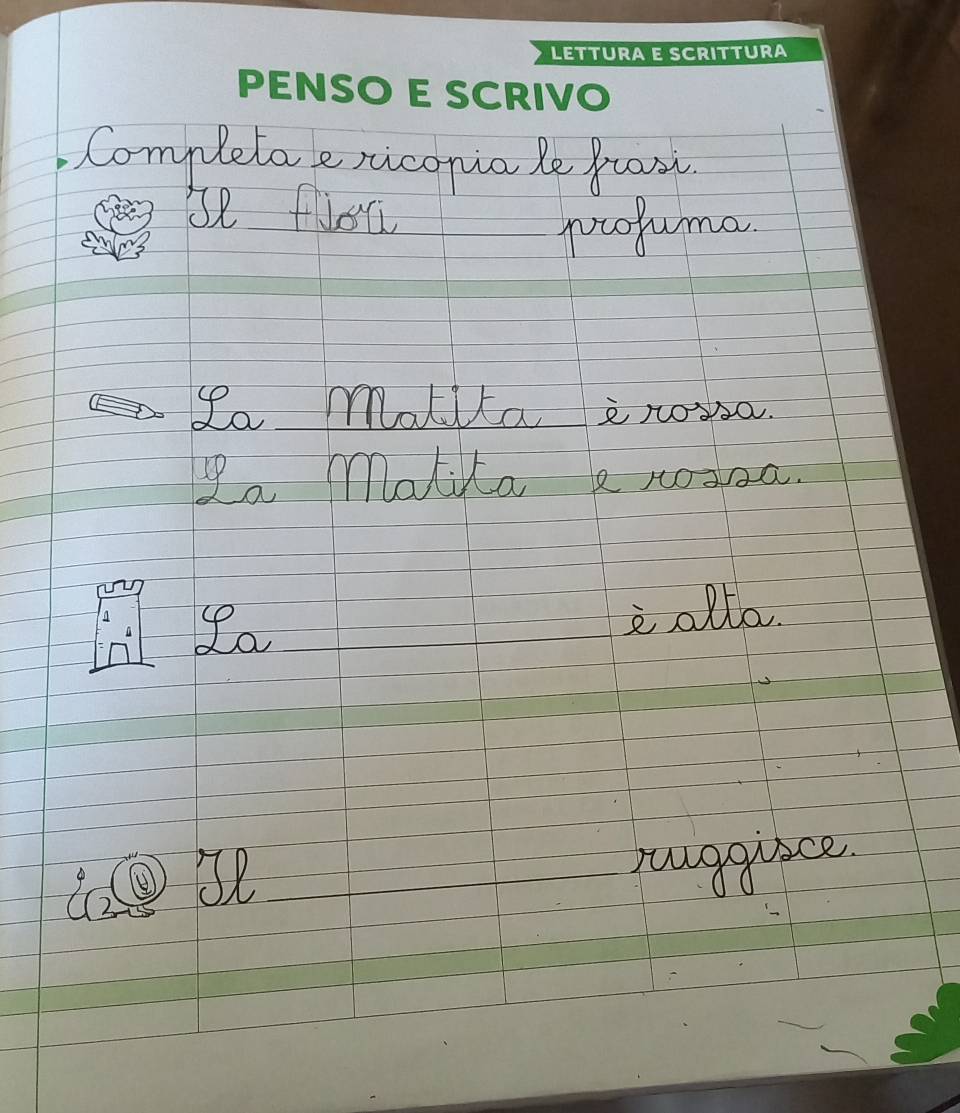 LETTURA E SCRITTURA
PENSO E SCRIVO
Completa e ricopia le frasi.
Il fiori profuma.
La Matita è rossa.
La Matita e rossa.
La è alta.
Il ruggisce.